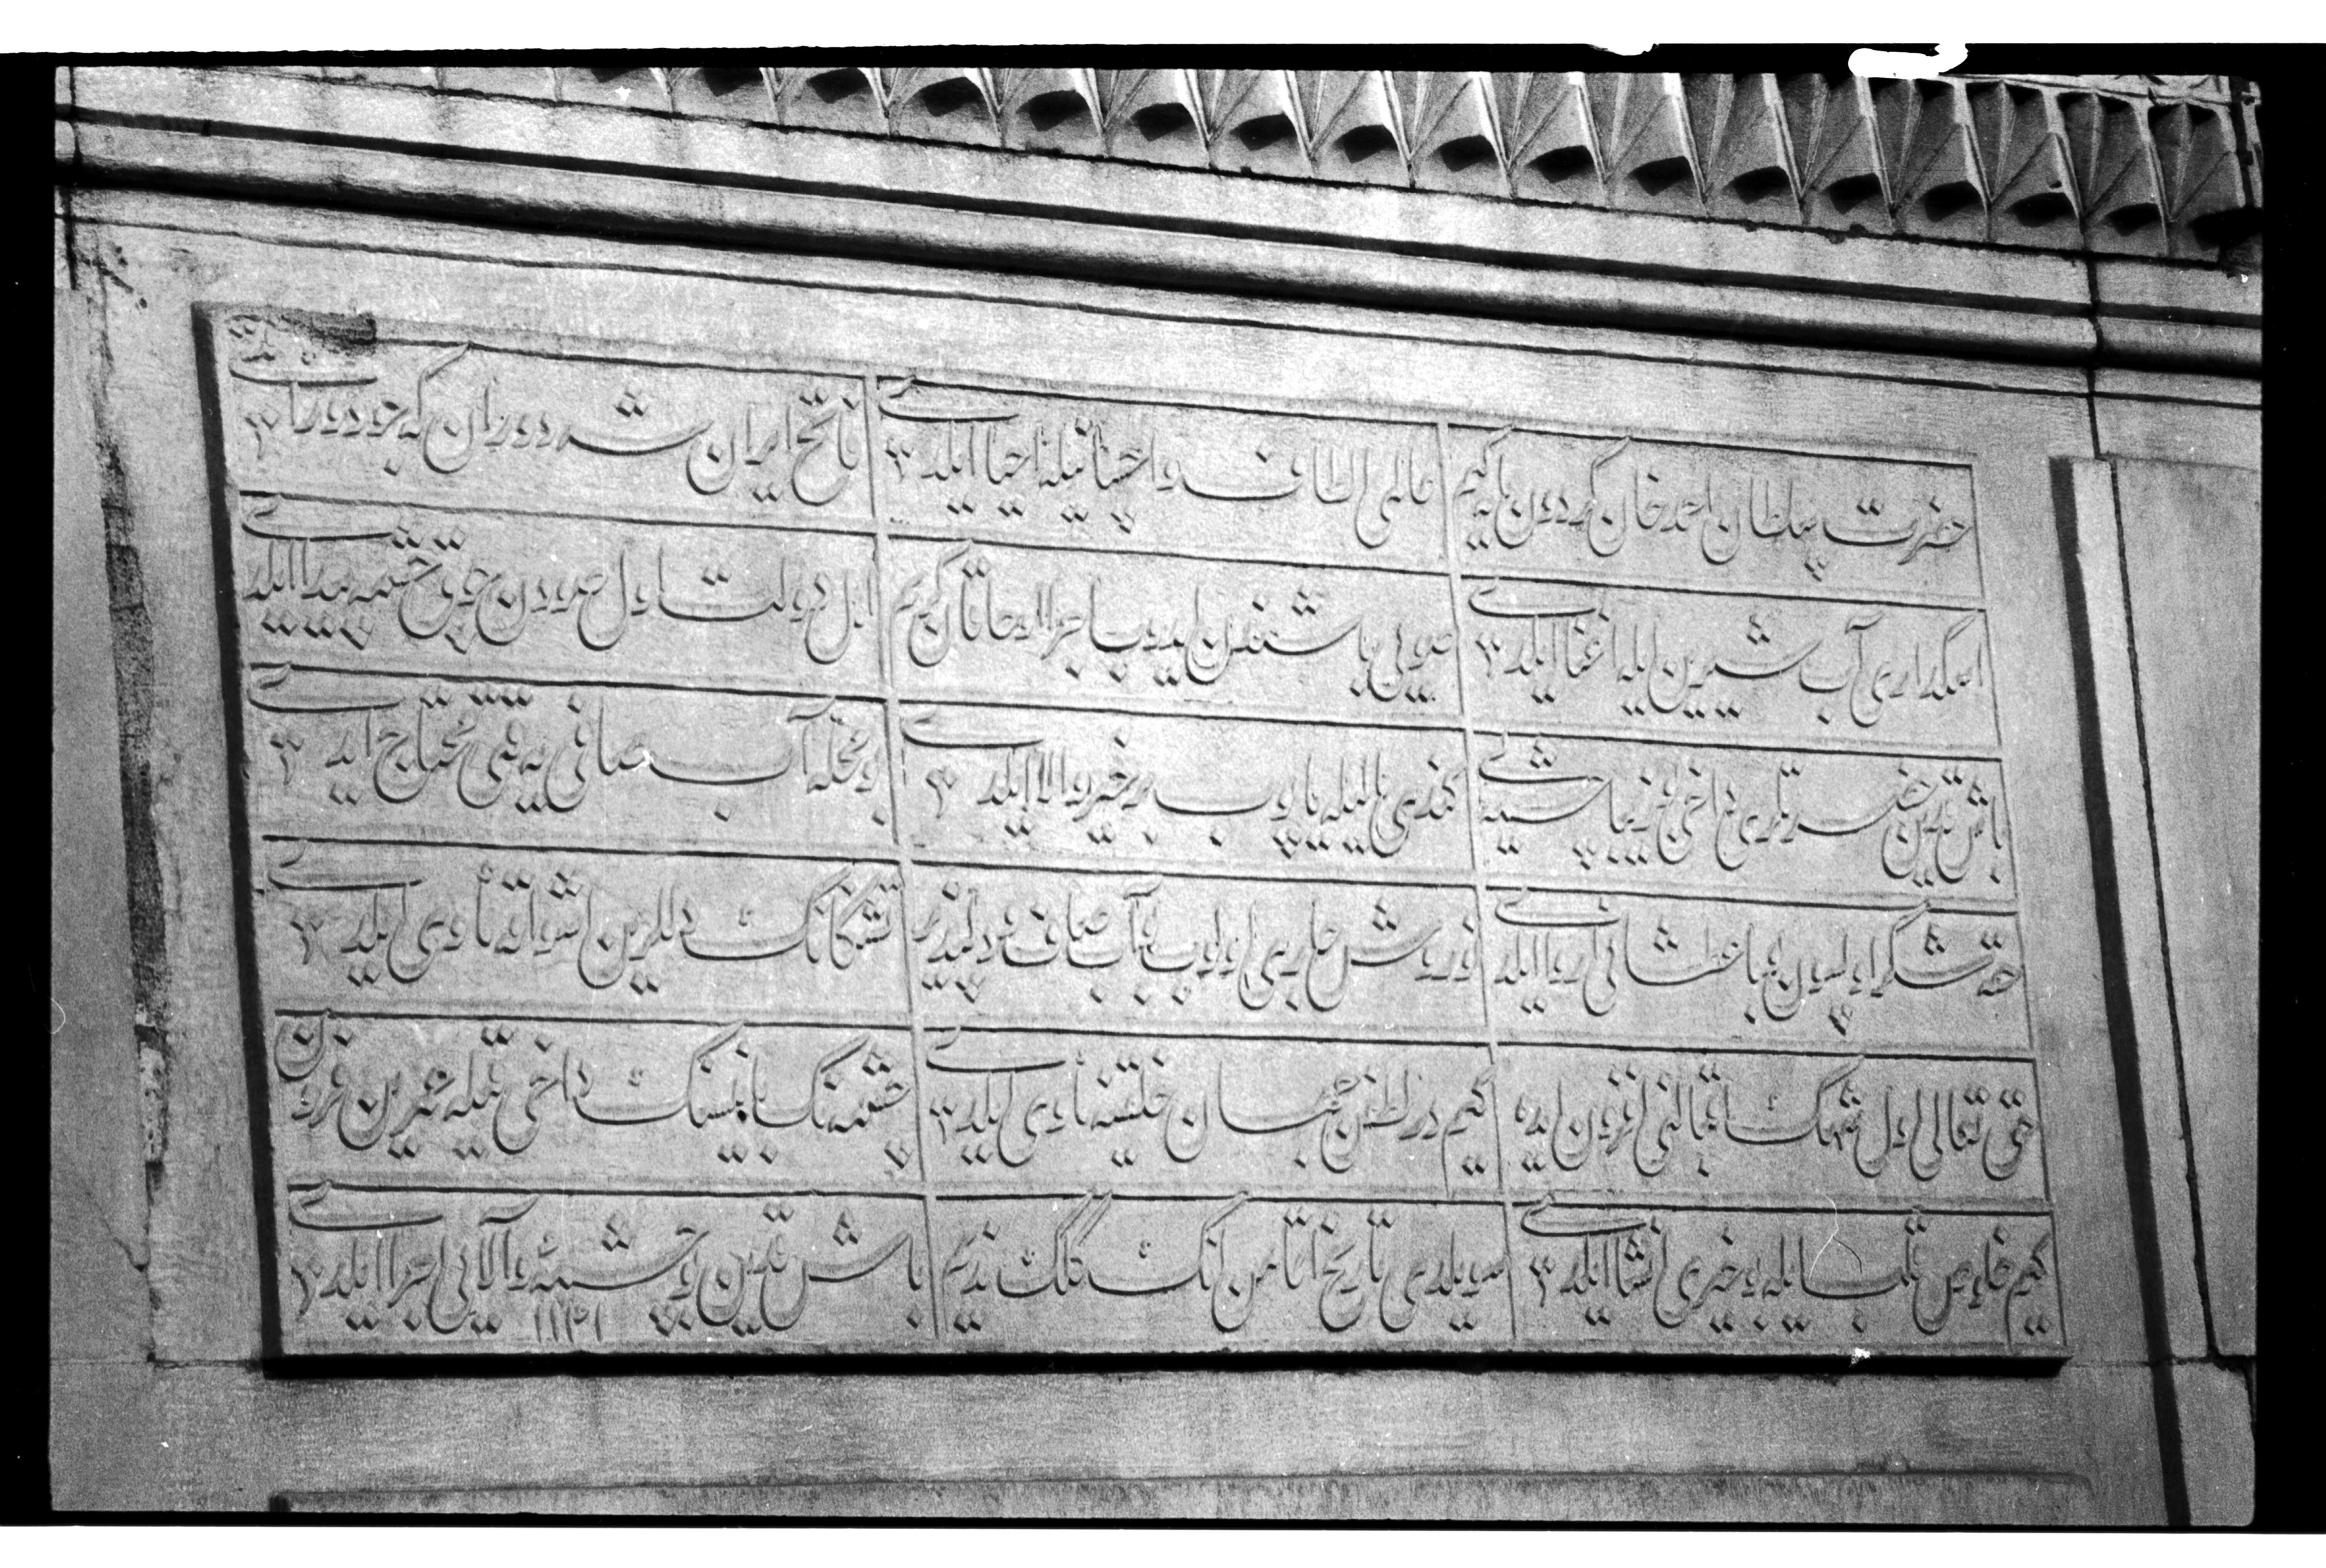 حضرت سلطان احمد خان گردون پایه کیم
عالمی الطاف و احسانیله احیا ایلدی
فاتح ایران شه دوران که جود
آب شیرین ایله اغنا ایلدی
صویی باشندن ایدوب اجرا او خاقان کریم
اهل دولت اول صودن چوق چشمه پیدا ایلدی
باش قادین حضرتلری داخی بو زیبا چشمه یی
کندی مالیله یاپوب بر خیر والا ایلدی
بو محله آب صافی یه قتی محتاج ایدی
حقه شکر اولسون عطشانی اروا ایلدی
جاری اولوب بو آب صاف دلپذیر
تشنکانک دللرین ایلدی
حق تعالی اول شهک اقبالنی افزون ایده
کیم در لطفن جهان خلقینه مأوی ایلدی
چشمه نک بانیسنک داخی قیله عمرین فزون
کیم خلوص قلب ایله بو خیری انشا ایلدی
سویلدی تاریخ اتمامن انک کلک ندیم
باش قادین بو چشمۀ والایی اجرا ایلدی
١١٤١